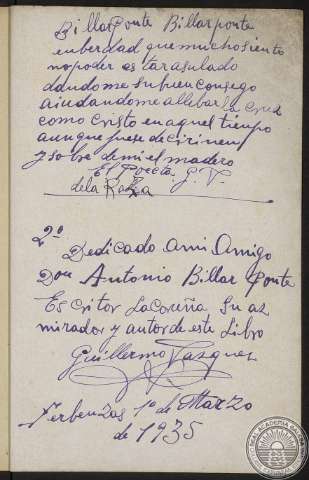 Billar Ponte Billar ponte
enberdad que mucho siento
no poder estar asulado
dandome su buen consego
aiudandome allebar la cruz
como Cristo en aquel tienpo
aunque fuese de cirineu
y sobre demi el madero
El Poecta G. V.
dela Raza
2º
Dedicado ami Amigo
Don Antonio Billar Ponte
Escritor La Coruña Su ad
mirador y autor de este Libro
Guillermo Vazquez
Ferbenzas 1º de Marzo
de 1935
REAL ACADEMIA GALEGA